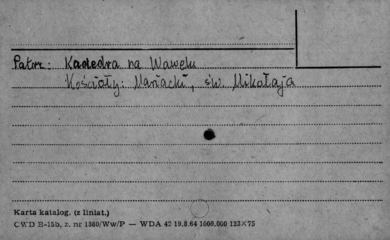 Patrz: Katedra na Wawelu
Kościoły: Mariacki, św. Mikołaja
Karta katalog. (z liniat.)
CWD B-15b, z. nr 1380/Ww/P — WDA 42 19.8.64 1000.000 123×75